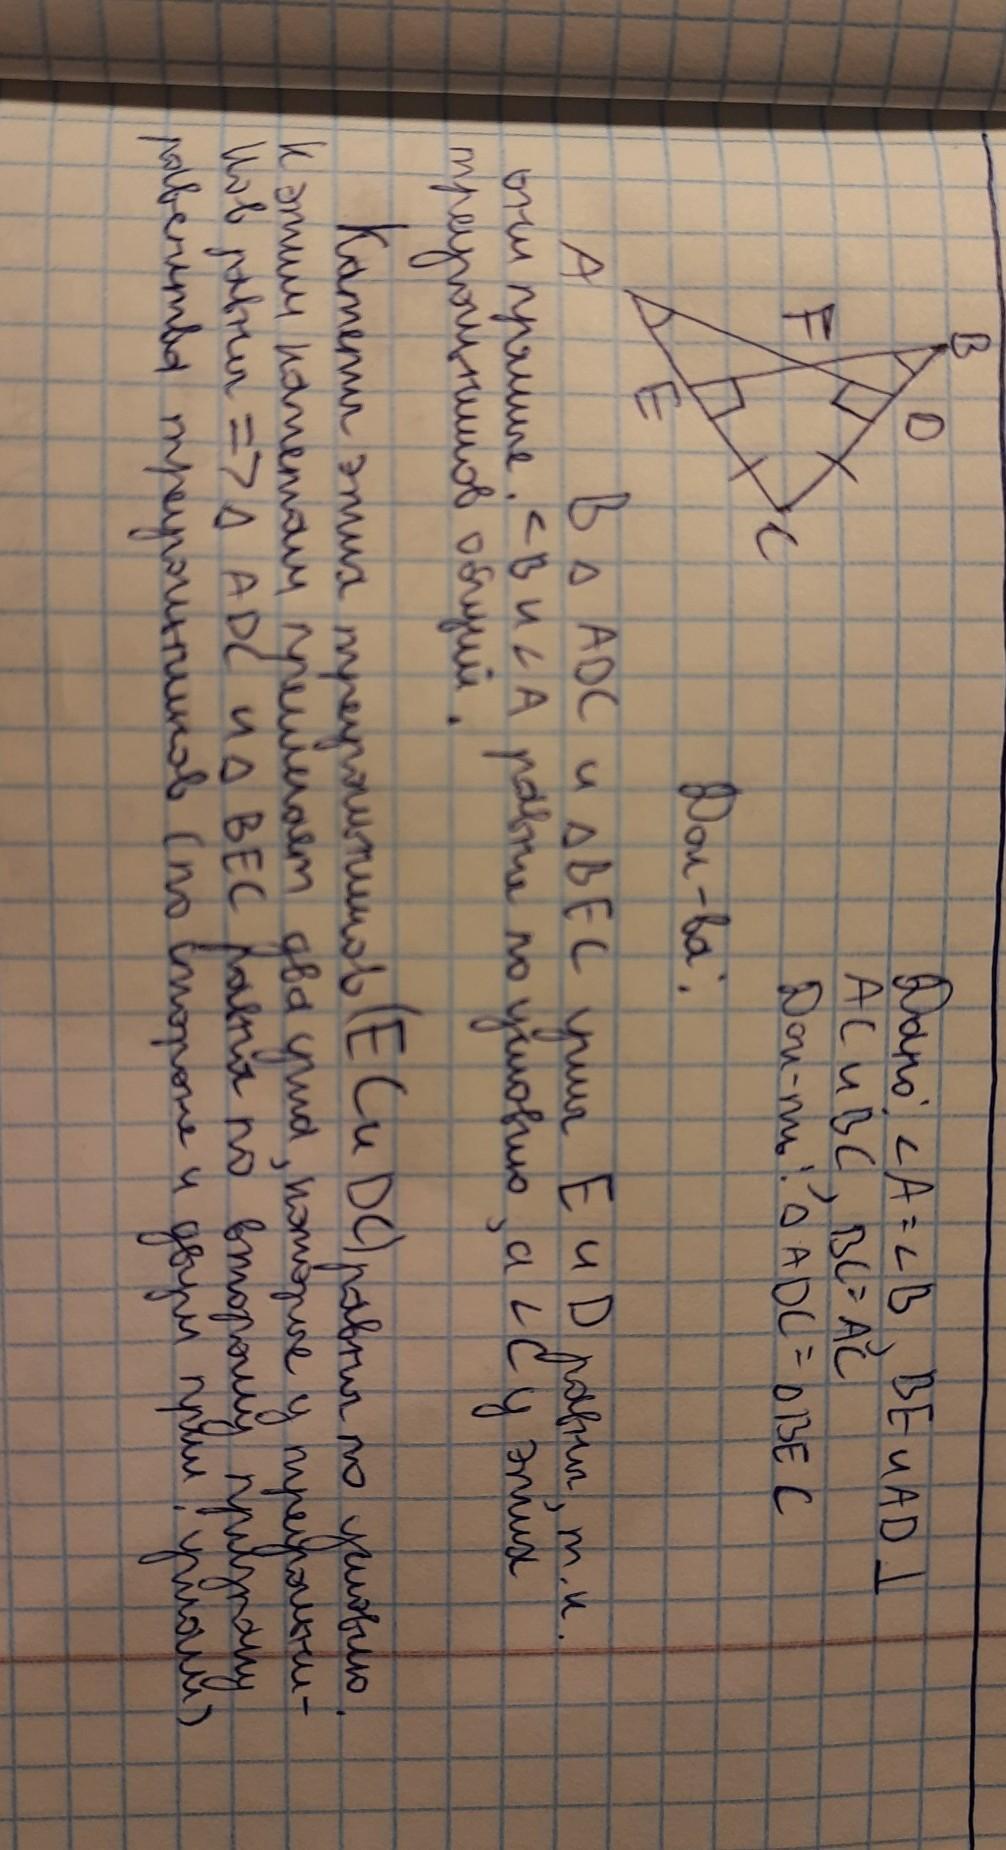 B
D
F
A
E
C
Дано: <A=<B, BE и AD ⊥
AC и BC, BC=AC
Док-ть: △ADC=△BEC
Док-ва:
В △ ADC и △BEC углы E и D равны, т.к.
они прямые. <B и <A равны по условию, а <C у этих
треугольников общий.
Катеты этих треугольников (EC и DC) равны по условию.
К этим катетам прилегают два угла, которые у треугольни-
ков равны => △ ADC и △ BEC равны по второму признаку
равенства треугольников (по стороне и двум прил. углам)